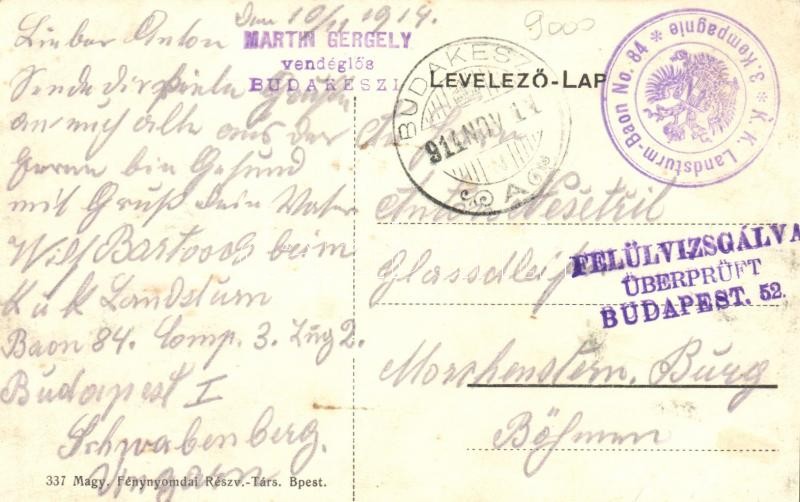 Den 10/11 1914.
Lieber Anton
Sende dir viele Grüße
an euch alle aus der
Ferne bin Gesund
mit Gruß dein Vater
Wilh Bartosch beim
K u k Landsturm
Baon 84. Comp. 3. Zug 2.
Budapest I
Schwabenberg.
Ungarn
337 Magy. Fénynyomdai Részv.-Társ. Bpest.
MARTIN GERGELY
vendéglős
BUDAKESZI
9000
LEVELEZŐ-LAP
BUDAKESZI
914 NOV 11
K. K. Landsturm-Baon No. 84 * 3. Kompagnie *
Anton Nešetřil
Morchenstern, Burg
Böhmen
FELÜLVIZSGÁLVA
ÜBERPRÜFT
BUDAPEST. 52.